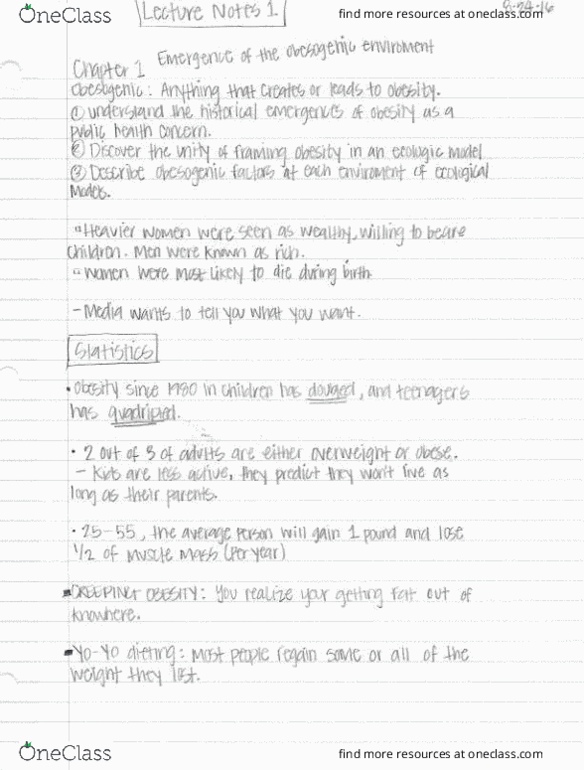 OneClass
find more resources at oneclass.com
8-24-16
Lecture Notes 1
Emergence of the obesogenic enviroment
Chapter 1
Obesogenic: Anything that creates or leads to obesity.
① understand the historical emergences of obesity as a
public health concern.
② Discover the unity of framing obesity in an ecologic model
③ Describe obesogenic factors at each enviroment of ecological
Models.
"Heavier women were seen as wealthy, willing to beare
children. Men were known as rich.
" women were most likely to die during birth
- Media wants to tell you what you want.
Statistics
• Obesity since 1980 in children has doubled, and teenagers
has quadripled.
• 2 out of 3 of adults are either overweight or obese.
- Kids are less active, they predict they won't live as
long as their parents.
• 25-55, the average person will gain 1 pound and lose
1/2 of muscle mass (per year)
CREEPING OBESITY: You realize your getting fat out of
knowhere.
Yo-Yo dieting: Most people regain some or all of the
weight they lost.
OneClass
find more resources at oneclass.com